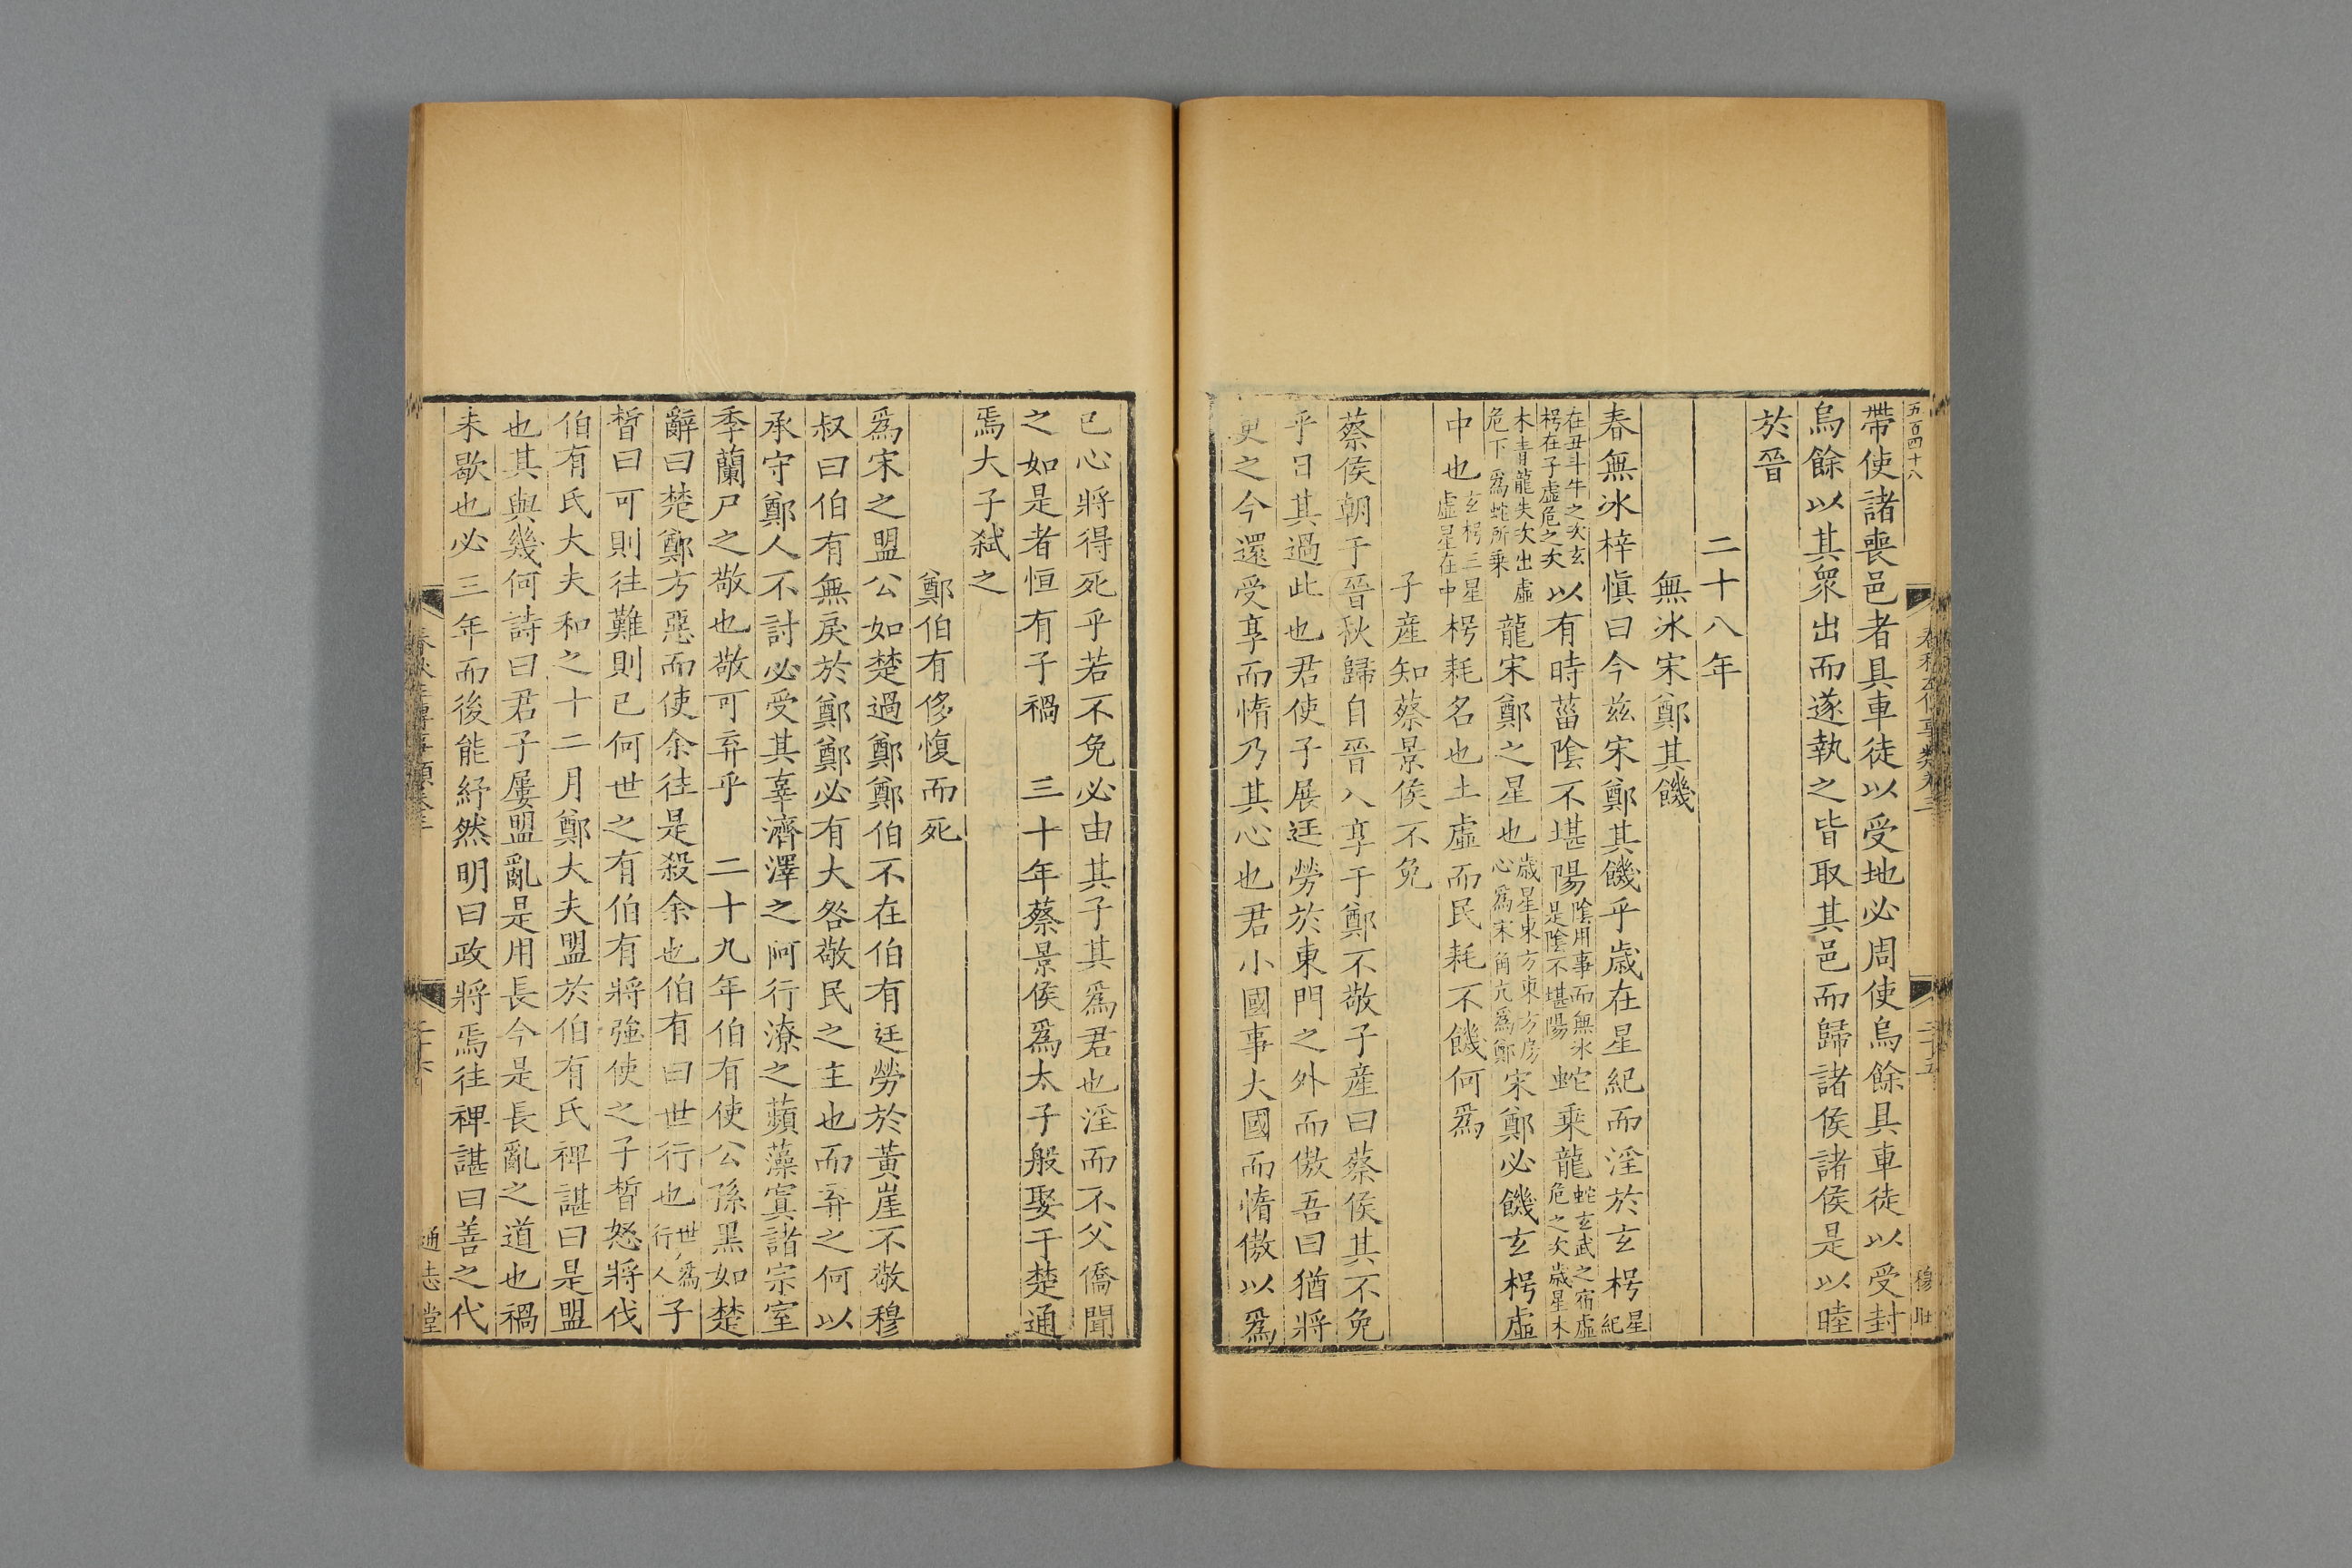 五百四十八
帶使諸喪邑者具車徒以受地必周使烏餘具車徒以受封
烏餘以其衆出而遂執之皆取其邑而歸諸侯諸侯是以睦
於晉
二十八年
無冰宋鄭其饑
春無冰梓愼曰今兹宋鄭其饑乎歲在星紀而淫於玄枵星紀
在丑斗牛之次玄枵在子虛危之次以有時菑陰不堪陽陰用事而無冰是陰不堪陽蛇乘龍蛇玄武之宿虛危之次歲星木
木青龍失次出虛危下爲蛇所乗龍宋鄭之星也歲星東方東方房心爲宋角亢爲鄭宋鄭必饑玄枵虛
中也玄枵三星虛星在中枵耗名也土虛而民耗不饑何爲
子產知蔡景侯不免
蔡侯朝于晉秋歸自晉入享于鄭不敬子產曰蔡侯其不免
乎日其過此也君使子展迋勞於東門之外而傲吾曰猶將
更之今還受享而惰乃其心也君小國事大國而惰傲以爲
已心將得死乎若不免必由其子其爲君也淫而不父僑聞
之如是者恒有子禍 三十年蔡景侯爲太子般娶于楚通
焉大子弑之
鄭伯有侈愎而死
爲宋之盟公如楚過鄭鄭伯不在伯有迋勞於黃崖不敬穆
叔曰伯有無戾於鄭鄭必有大咎敬民之主也而弃之何以
承守鄭人不討必受其辜濟澤之阿行潦之蘋藻寘諸宗室
季蘭尸之敬也敬可弃乎 二十九年伯有使公孫黑如楚
辭曰楚鄭方惡而使余往是殺余也伯有曰世行也世爲行人子
晳曰可則往難則已何世之有伯有將強使之子晳怒將伐
伯有氏大夫和之十二月鄭大夫盟於伯有氏裨諶曰是盟
也其與幾何詩曰君子屢盟亂是用長今是長亂之道也禍
未歇也必三年而後能紓然明曰政將焉往裨諶曰善之代
通志堂